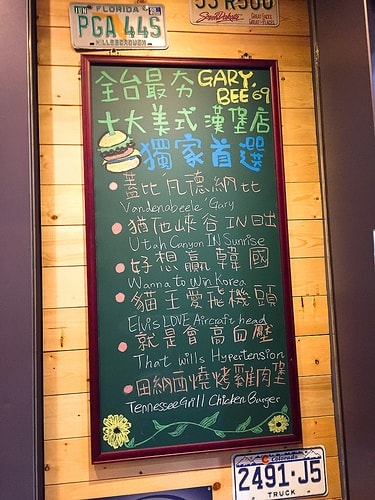 FLORIDA
PGA 44S
HILLSBOROUGH
55 R500
South Dakota
GREAT FACES.
GREAT PLACES.
全台最夯 GARY.
BEE'69
十大美式漢堡店
獨家首選
蓋比凡德納比
Vandenabeele' Gary
猶他峽谷IN日出
Utah Canyon IN Sunrise
好想贏韓國
Wanna to Win Korea
貓王愛飛機頭
Elvis LOVE Aircraft head
就是會高血壓
That wills Hypertension
田納西燒烤雞肉堡
Tennessee Grill Chicken Burger
Colorado
2491·J5
TRUCK